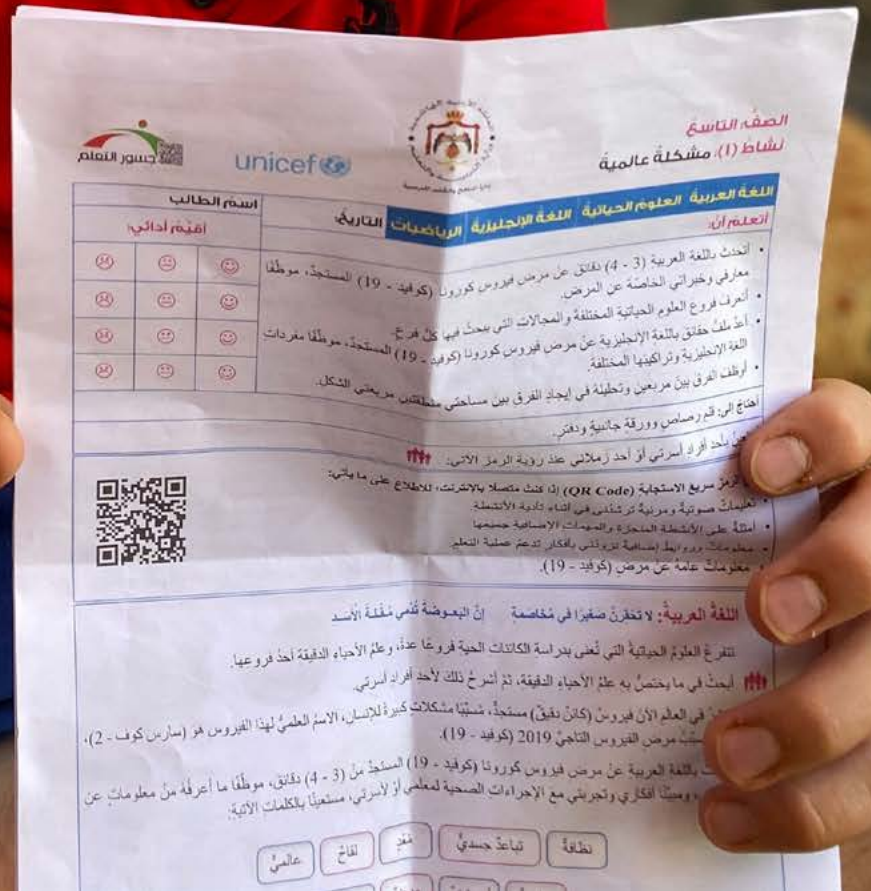 الصفُّ: التاسعُ
نشاطُ (1): مشكلةٌ عالميةٌ
unicef
جسور التعلم
اللغةُ العربيةُ العلومُ الحياتيةُ اللغةُ الإنجليزيةُ الرياضياتُ التاريخُ:
اسمُ الطالب
أتعلّمُ أنْ:
أقيّمُ أدائي:
• أتحدثَ باللغة العربيةِ (3 - 4) دقائق عنْ مرض فيروس كورونا (كوفيد - 19) المستجدّ، موظّفًا
معارفي وخبراتي الخاصّة عن المرض.
• أتعرفَ فروع العلوم الحياتية المختلفةَ والمجالات التي يبحثُ فيها كلُّ فرعٍ.
• أعدَّ ملفَّ حقائق باللغة الإنجليزية عنْ مرض فيروس كورونا (كوفيد - 19) المستجدّ، موظّفًا مفردات
اللغة الإنجليزية وتراكيبها المختلفة.
• أوظّفَ الفرق بينَ مربعين وتحليلهُ في إيجادِ الفرق بين مساحتي منطقتين مربعتي الشكل.
أحتاجُ إلى: قلم رصاص وورقة جانبية ودفتر.
بأحد أفراد أسرتي أوْ أحد زملائي عند رؤية الرمز الآتي:
الرمزَ سريع الاستجابة (QR Code) إذا كنتُ متصلًا بالإنترنت، للاطلاع على ما يأتي:
• تعليماتٌ صوتيةٌ ومرئيةٌ ترشدُني في أثناء تأدية الأنشطة.
• أمثلةٌ على الأنشطة المنجزة والمهمات الإضافية جميعها
• معلوماتٌ وروابط إضافيةٌ تزوّدُني بأفكار تدعمُ عملية التعلم.
• معلوماتٌ عامةٌ عنْ مرض (كوفيد - 19).
اللغةُ العربيةُ: لا تحقرنَّ صغيرًا في مُخاصمة إنَّ البعوضةَ تُدمي مُقلةَ الأسد
تتفرعُ العلومُ الحياتيةُ التي تُعنى بدراسة الكائنات الحية فروعًا عدةً، وعلمُ الأحياء الدقيقة أحدُ فروعها.
أبحثُ في ما يختصُّ به علمُ الأحياء الدقيقة، ثمّ أشرحُ ذلك لأحد أفراد أسرتي.
في العالم الآن فيروسٌ (كائنٌ دقيقٌ) مستجدٌّ، مُسبّبًا مشكلاتٍ كبيرةً للإنسان، الاسمُ العلميُّ لهذا الفيروس هو (سارس كوف - 2)،
مرض الفيروس التاجيّ 2019 (كوفيد - 19).
باللغة العربية عنْ مرض فيروس كورونا (كوفيد - 19) المستجدّ منْ (3 - 4) دقائق، موظّفًا ما أعرفُهُ منْ معلوماتٍ عن
، ومبيّنًا أفكاري وتجربتي معَ الإجراءات الصحية لمعلمي أوْ لأسرتي، مستعينًا بالكلمات الآتية:
نظافةٌ تباعدٌ جسديٌّ مُعْدٍ لقاحٌ عالميٌّ